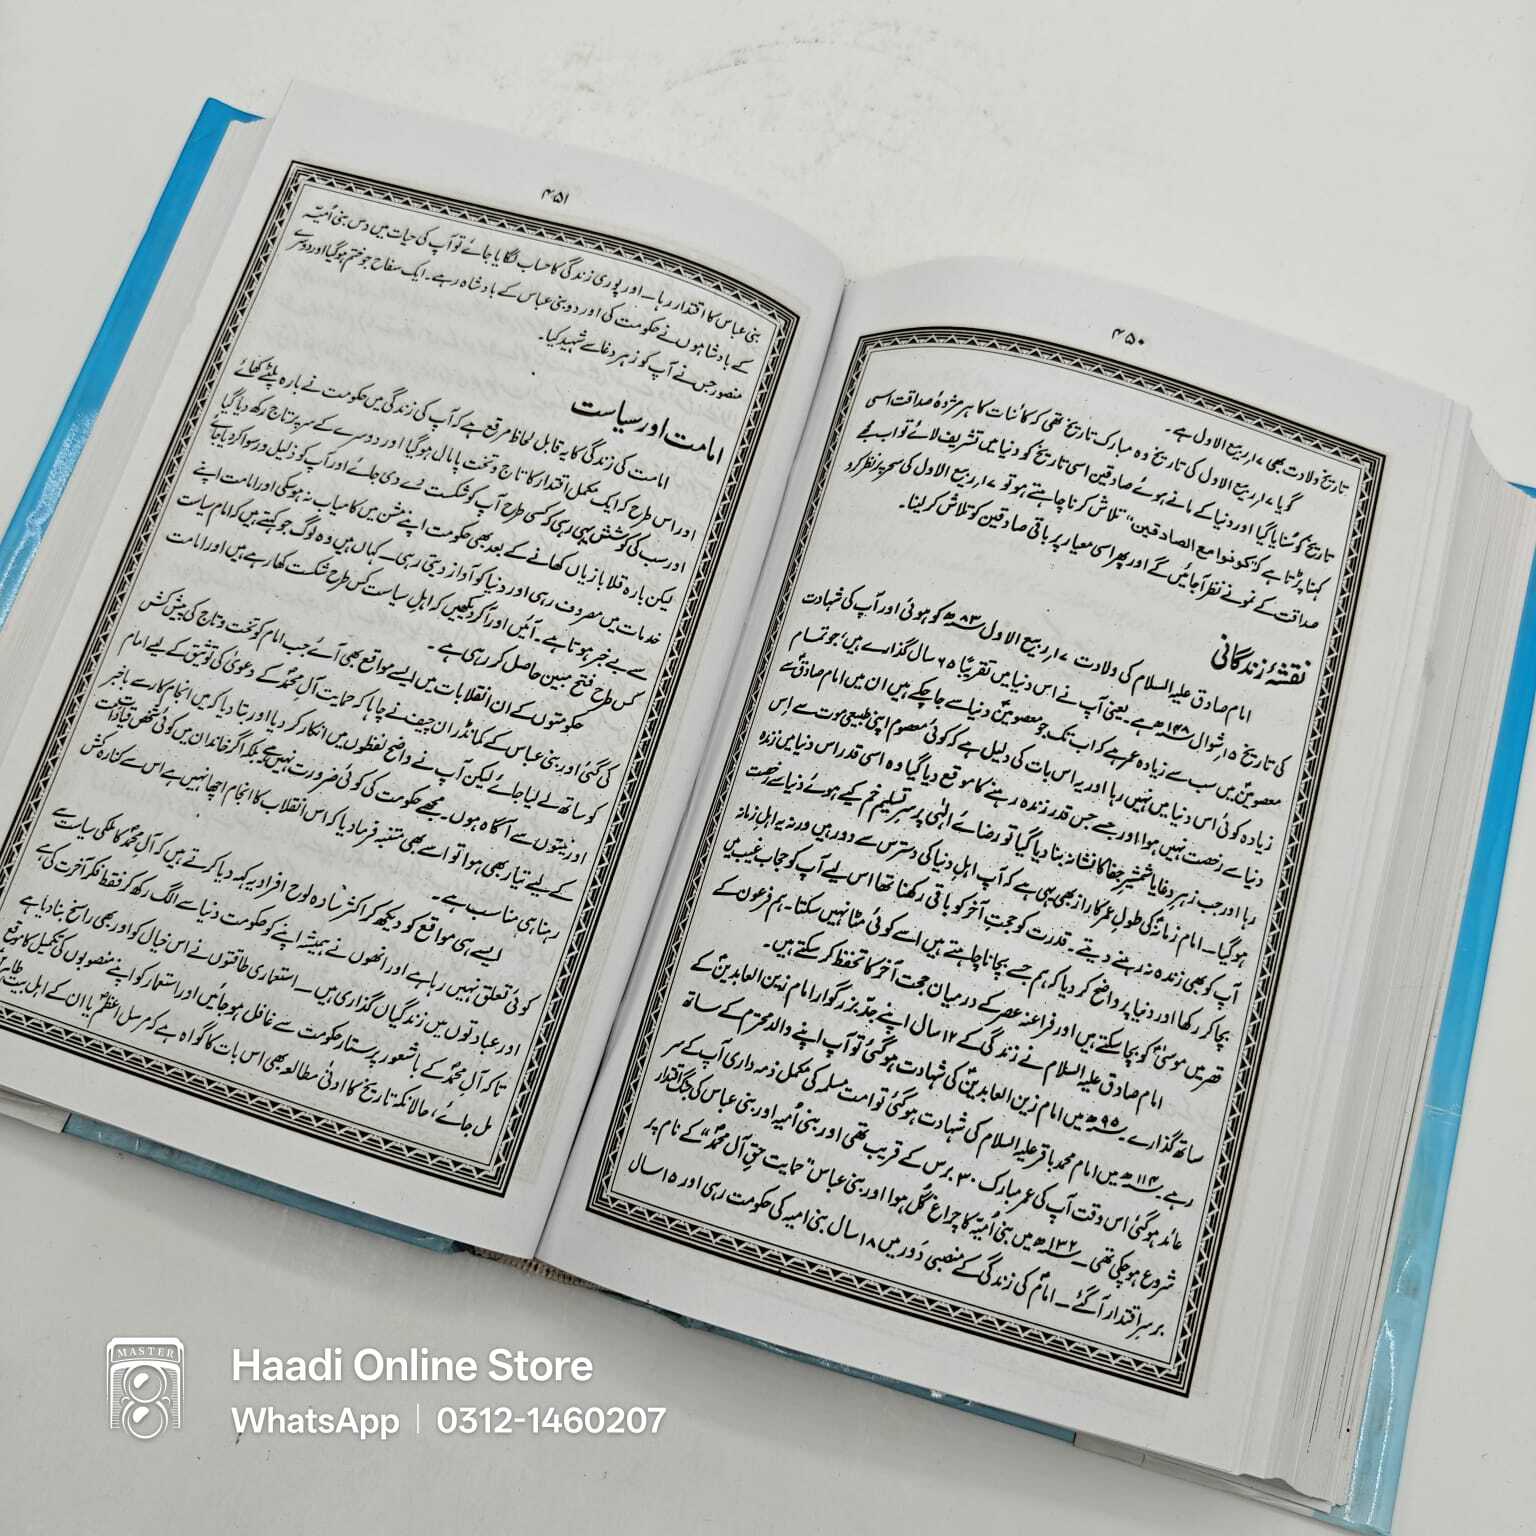 ۴۵۰
تاریخ ولادت بھی ۱۷ ربیع الاول ہے۔
گویا ۱۷ ربیع الاول کی تاریخ وہ مبارک تاریخ تھی کہ کائنات کا ہر مژدۂ صداقت اسی
تاریخ کو سُنایا گیا اور دنیا کے مانے ہوئے صادقین اسی تاریخ کو دنیا میں تشریف لائے تو اب مجھے
کہنا پڑتا ہے کہ "کونوا مع الصادقین" تلاش کرنا چاہتے ہو تو ۱۷ ربیع الاول کی سحر پر نظر کرو
صداقت کے نمونے نظر آجائیں گے اور پھر اسی معیار پر باقی صادقین کو تلاش کر لینا۔
نقشۂ زندگانی
امام صادق علیہ السلام کی ولادت ۱۷ ربیع الاول ۸۳ھ کو ہوئی اور آپ کی شہادت
کی تاریخ ۱۵ شوال ۱۴۸ھ ہے۔ یعنی آپ نے اس دنیا میں تقریباً ۶۵ سال گذارے ہیں، جو تمام
معصومینؑ میں سب سے زیادہ عمر ہے کہ اب تک جو معصومینؑ دنیا سے جا چکے ہیں ان میں امام صادقؑ سے
زیادہ کوئی اس دنیا میں نہیں رہا اور یہ اس بات کی دلیل ہے کہ کوئی معصوم اپنی طبیعی موت سے اس
دنیا سے رخصت نہیں ہوا اور جسے جس قدر زندہ رہنے کا موقع دیا گیا وہ اسی قدر اس دنیا میں زندہ
رہا اور جب زہر دغا یا شمشیر جفا کا نشانہ بنا دیا گیا تو رضائے الٰہی پر سر تسلیم خم کیے ہوئے دنیا سے رخصت
ہو گیا۔ امام زمانہؑ کی طول عمر کا راز بھی یہی ہے کہ آپ اہل دنیا کی دسترس سے دور ہیں ورنہ یہ اہل زمانہ
آپ کو بھی زندہ نہ رہنے دیتے۔ قدرت کو حجت آخر کو باقی رکھنا تھا اس لیے آپ کو حجاب غیب میں
بچا کر رکھا اور دنیا پر واضح کر دیا کہ ہم جسے بچانا چاہتے ہیں اسے کوئی مٹا نہیں سکتا۔ ہم فرعون کے
قصر میں موسیٰؑ کو بچا سکتے ہیں اور فراعنہ عصر کے درمیان حجت آخر کا تحفظ کر سکتے ہیں۔
امام صادق علیہ السلام نے زندگی کے ۱۲ سال اپنے جدّ بزرگوار امام زین العابدینؑ کے
ساتھ گذارے۔ ۹۵ھ میں امام زین العابدینؑ کی شہادت ہو گئی تو آپ اپنے والد محترم کے ساتھ
رہے۔ ۱۱۴ھ میں امام محمد باقر علیہ السلام کی شہادت ہو گئی تو امت مسلمہ کی مکمل ذمہ داری آپ کے سر
عائد ہو گئی اس وقت آپ کی عمر مبارک ۳۰ برس کے قریب تھی اور بنی اُمیہ اور بنی عباس کی جنگ اقتدار
شروع ہو چکی تھی۔ ۱۳۲ھ میں بنی اُمیّہ کا چراغ گل ہوا اور بنی عباس "حمایت حقِ آل محمدؐ" کے نام پر
برسر اقتدار آگئے۔ امامؑ کی زندگی کے منصبی دَور میں ۱۸ سال بنی امیہ کی حکومت رہی اور ۱۵ سال
۴۵۱
بنی عباس کا اقتدار رہا۔ اور پوری زندگی کا حساب لگایا جائے تو آپ کی حیات میں دس بنی اُمیّہ
کے بادشاہوں نے حکومت کی اور دو بنی عباس کے بادشاہ رہے۔ ایک سفاح جو ختم ہو گیا اور دوسرے
منصور جس نے آپ کو زہر دغا سے شہید کیا۔
امامت اور سیاست
امامت کی زندگی کا یہ قابل لحاظ مرقع ہے کہ آپ کی زندگی میں حکومت نے بارہ پلٹے کھائے
اور اس طرح کہ ایک مکمل اقتدار کا تاج و تخت پامال ہو گیا اور دوسرے کے سر پر تاج رکھ دیا گیا
اور سب کی کوشش یہی رہی کہ کسی طرح آپ کو شکست دے دی جائے اور آپ کو ذلیل و رسوا کر دیا جائے
لیکن بارہ قلابازیاں کھانے کے بعد بھی حکومت اپنے مشن میں کامیاب نہ ہو سکی اور امامت اپنے
خدمات میں مصروف رہی اور دنیا کو آواز دیتی رہی۔ کہاں ہیں وہ لوگ جو کہتے ہیں کہ امام سیاست
سے بے خبر ہوتا ہے۔ آئیں اور آکر دیکھیں کہ اہل سیاست کس طرح شکست کھا رہے ہیں اور امامت
کس طرح فتح مبین حاصل کر رہی ہے۔
حکومتوں کے ان انقلابات میں ایسے مواقع بھی آئے جب امام کو تخت و تاج کی پیش کش
کی گئی اور بنی عباس کے کمانڈر ان چیف نے چاہا کہ حمایت آل محمدؐ کے دعویٰ کی توثیق کے لیے امام
کو ساتھ لے لیا جائے لیکن آپ نے واضح لفظوں میں انکار کر دیا اور بتا دیا کہ میں انجام کار سے باخبر
اور نیتوں سے آگاہ ہوں۔ مجھے حکومت کی کوئی ضرورت نہیں ہے بلکہ اگر خاندان میں کوئی شخص قیادت
کے لیے تیار بھی ہوا تو اسے بھی متنبہ فرما دیا کہ اس انقلاب کا انجام اچھا نہیں ہے اس سے کنارہ کش
رہنا ہی مناسب ہے۔
ایسے ہی مواقع کو دیکھ کر اکثر سادہ لوح افراد یہ کہہ دیا کرتے ہیں کہ آل محمدؐ کا ملکی سیاست سے
کوئی تعلق نہیں رہا ہے اور انھوں نے ہمیشہ اپنے کو حکومت دنیا سے الگ رکھ کر فقط فکر آخرت کی ہے
اور عبادتوں میں زندگیاں گذاری ہیں۔ استعماری طاقتوں نے اس خیال کو اور بھی راسخ بنا دیا ہے
تاکہ آل محمدؐ کے باشعور پرستار حکومت سے غافل ہو جائیں اور استعمار کو اپنے منصوبوں کی تکمیل کا موقع
مل جائے، حالانکہ تاریخ کا ادنیٰ مطالعہ بھی اس بات کا گواہ ہے کہ مرسل اعظمؐ یا ان کے اہل بیت
MASTER
Haadi Online Store
WhatsApp | 0312-1460207